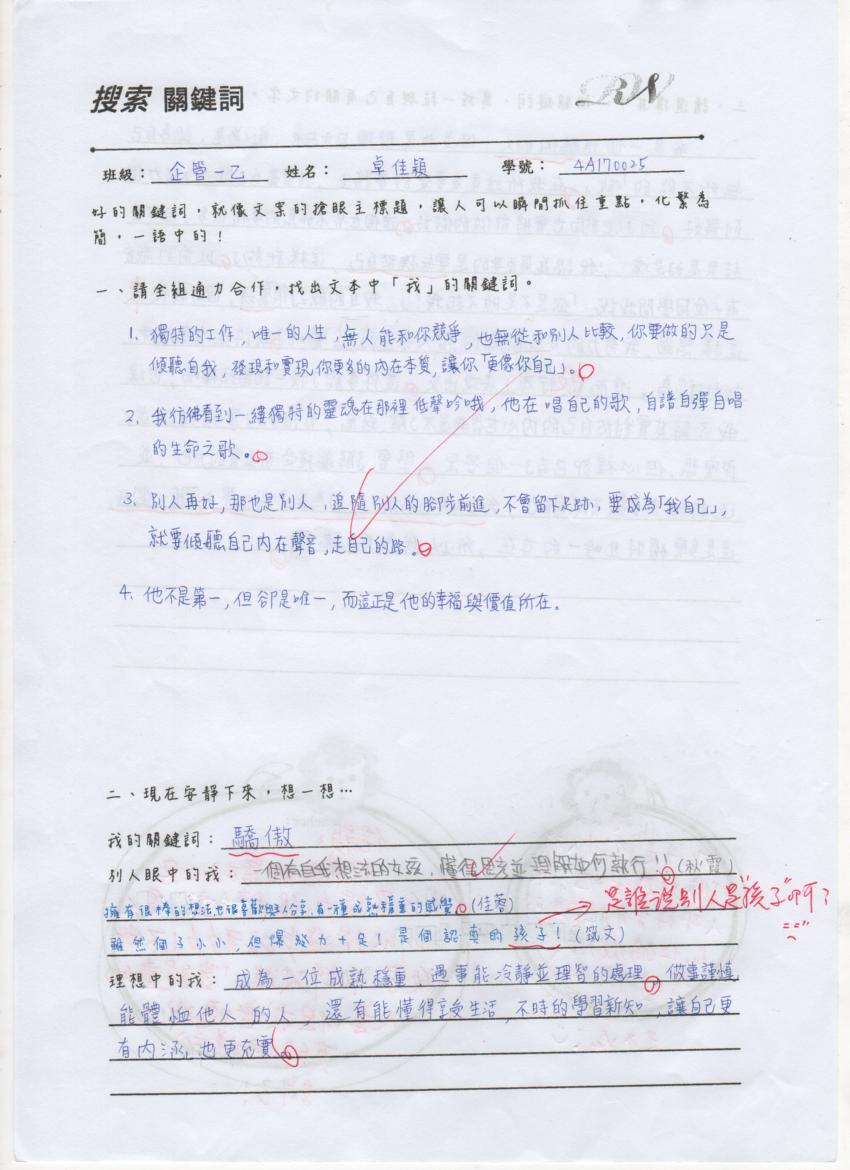 搜索 關鍵詞
班級： 企管一乙 姓名： 卓佳穎 學號： 4A170025
好的關鍵詞，就像文案的搶眼主標題，讓人可以瞬間抓住重點，化繁為
簡，一語中的！
一、請全組通力合作，找出文本中「我」的關鍵詞。
1. 獨特的工作，唯一的人生，無人能和你競爭，也無從和別人比較，你要做的只是
傾聽自我，發現和實現你更多的內在本質，讓你「更像你自己」。
2. 我彷彿看到一縷獨特的靈魂在那裡低聲吟哦，他在唱自己的歌，自譜自彈自唱
的生命之歌。
3. 別人再好，那也是別人，追隨別人的腳步前進，不會留下足跡，要成為「我自己」，
就要傾聽自己內在聲音，走自己的路。
4. 他不是第一，但卻是唯一，而這正是他的幸福與價值所在。
二、現在安靜下來，想一想…
我的關鍵詞： 驕傲
別人眼中的我： 一個有自我想法的女孩，懂得思考並理解如何執行!! (秋霞)
擁有很棒的想法也很喜歡與人分享，有一種成熟穩重的感覺。(佳蓉)
是誰說別人是"孩子"的呀？
雖然個子小小，但爆發力十足！是個認真的孩子！(筑文)
理想中的我： 成為一位成熟穩重，遇事能冷靜並理智的處理，做事謹慎
能體恤他人的人，還有能懂得享受生活，不時的學習新知，讓自己更
有內涵，也更充實。